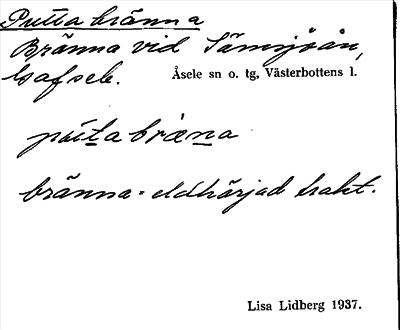 Putta bränna
Bränna vid Tämsjöån,
Gafsele. Åsele sn o. tg, Västerbottens l.
púttabrä̀na
bränna = eldhärjad trakt.
Lisa Lidberg 1937.